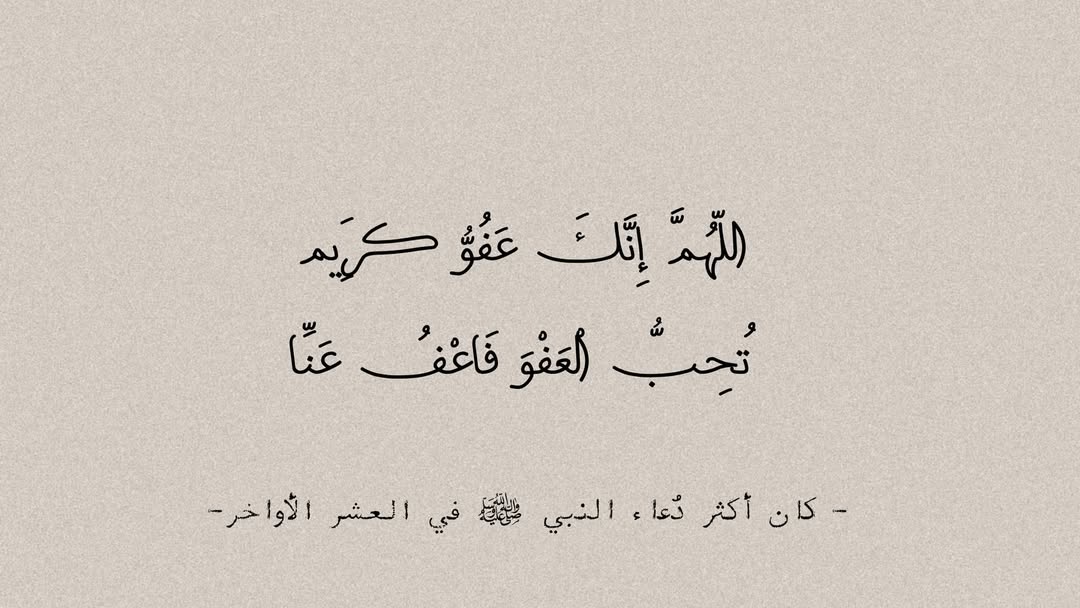 اللّهُمَّ إِنَّكَ عَفُوٌّ كَرَيِم
تُحِبُّ الْعَفْوَ فَاعْفُ عَنِّا
- كان أكثر دُعاء النبي ﷺ في العشر الأواخر-